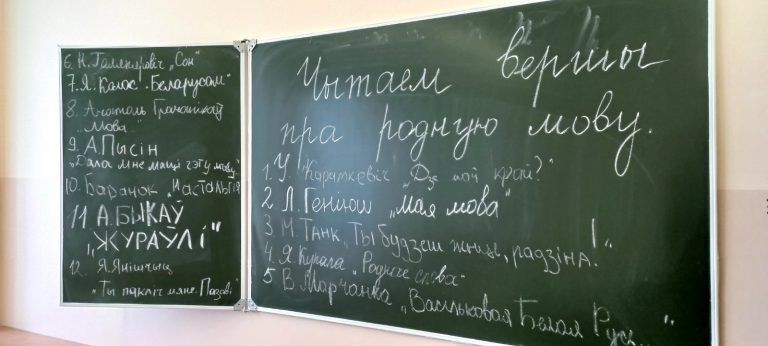 Чытаем вершы
пра родную мову.
1. У. Караткевіч „Дзе мой край?"
2 Л. Геніюш „Мая мова"
3 М. Танк „Ты будзеш жыць, радзіма!"
4. Я. Купала „Роднае слова"
5 В. Марчанка „Васильковая Белая Русь..."
6. Н. Галяпяровіч „Сон"
7. Я. Колас „Беларусам"
8. Анатоль Грачанікаў
„Мова"
9. А Пысін
„Дала мне маці гэту мову"
10. Баранок „Настальгія"
11 А. БЫКАЎ
„ЖУРАЎЛІ"
12. Я. Янішчыц
„Ты пакліч мяне. Пазаві"